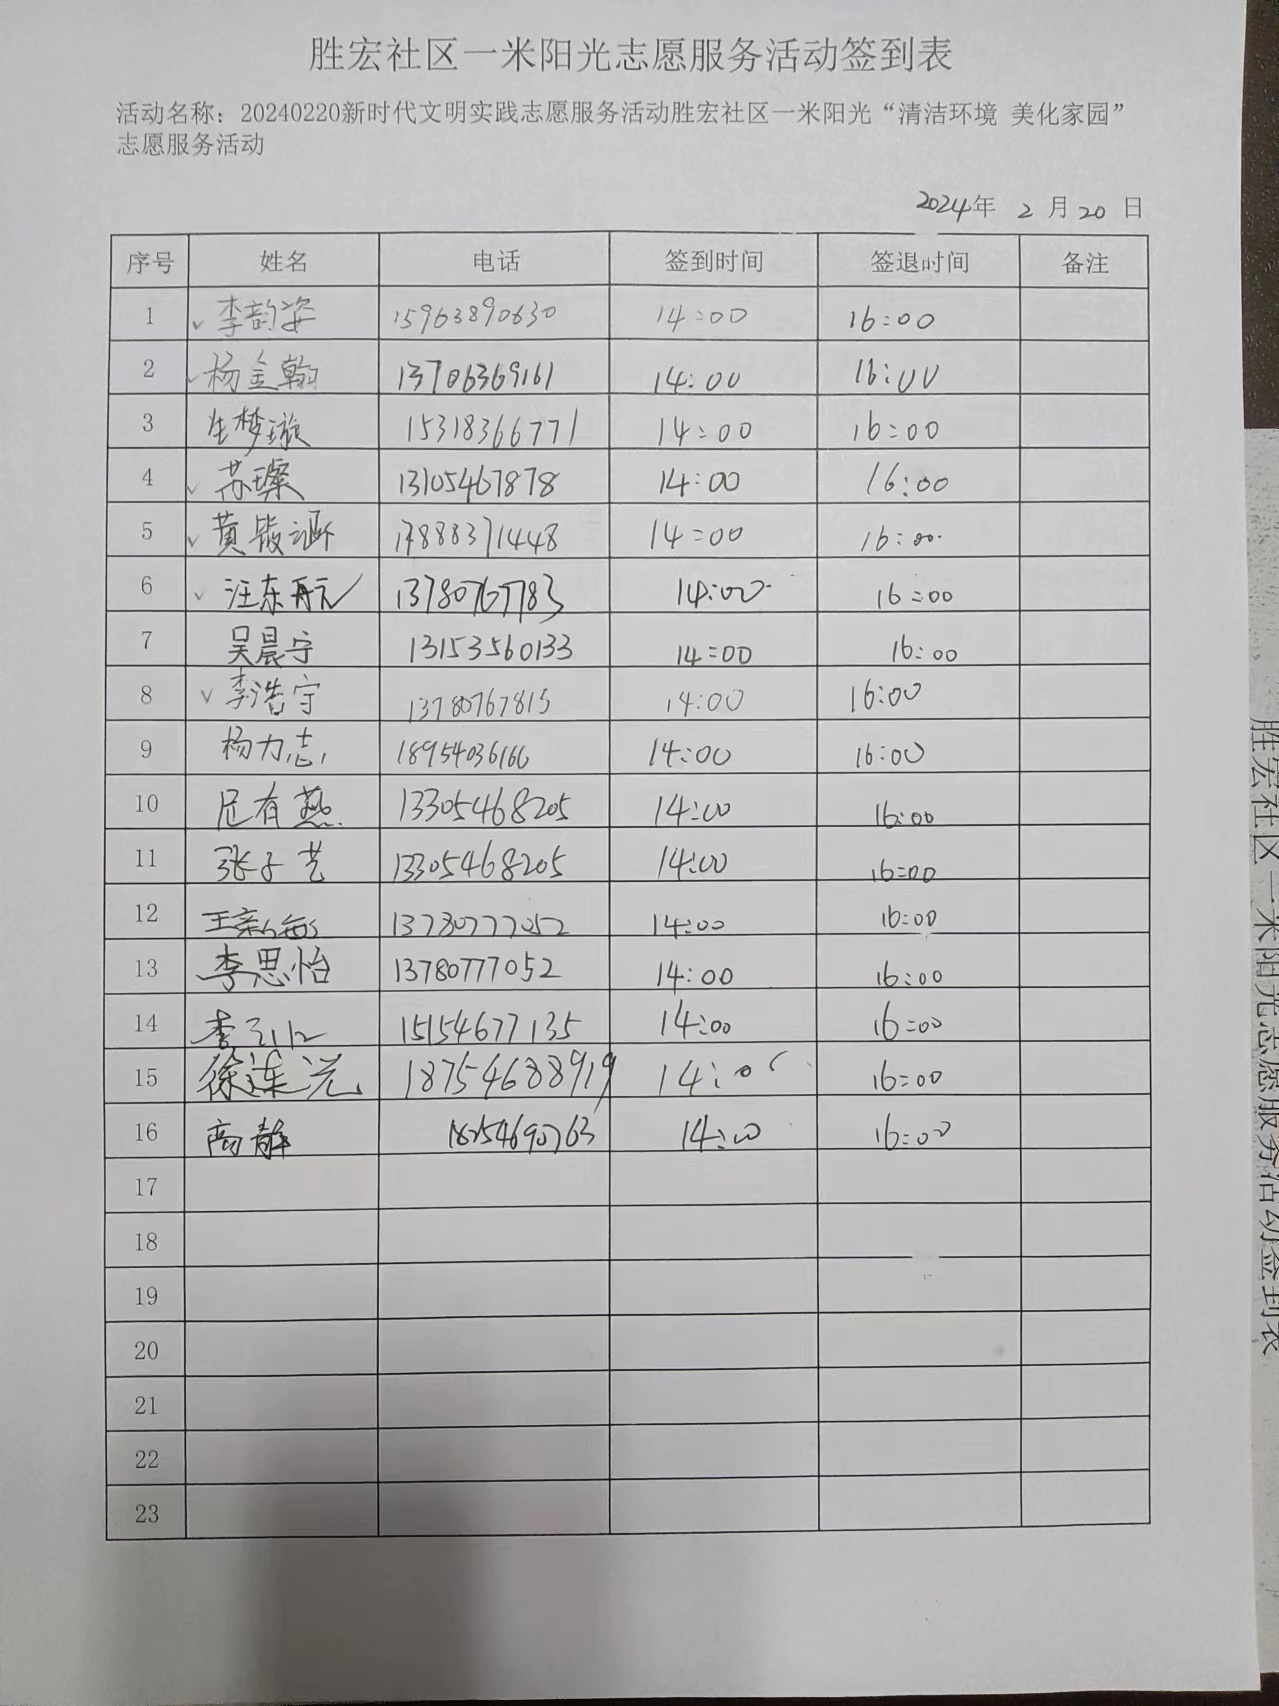 胜宏社区一米阳光志愿服务活动签到表
活动名称：20240220新时代文明实践志愿服务活动胜宏社区一米阳光“清洁环境 美化家园”
志愿服务活动
2024年 2 月 20 日
序号 姓名 电话 签到时间 签退时间 备注
1 李韵姿 15963890630 14:00 16:00
2 杨金翰 13706369161 14:00 16:00
3 生梦璇 15318366771 14:00 16:00
4 苏璨 13105467878 14:00 16:00
5 黄毓涵 17888371448 14:00 16:00
6 汪东 13780767783 14:00 16:00
7 吴晨宇 13153560133 14:00 16:00
8 李浩宇 13780767815 14:00 16:00
9 杨力志 18954036166 14:00 16:00
10 有燕 13305468205 14:00 16:00
11 张子艺 13305468205 14:00 16:00
12 王 13780777052 14:00 16:00
13 李思怡 13780777052 14:00 16:00
14 李 15154677135 14:00 16:00
15 徐连光 18754688919 14:00 16:00
16 高静 18254690763 14:00 16:00
17
18
19
20
21
22
23
胜宏社区一米阳光志愿服务活动签到表